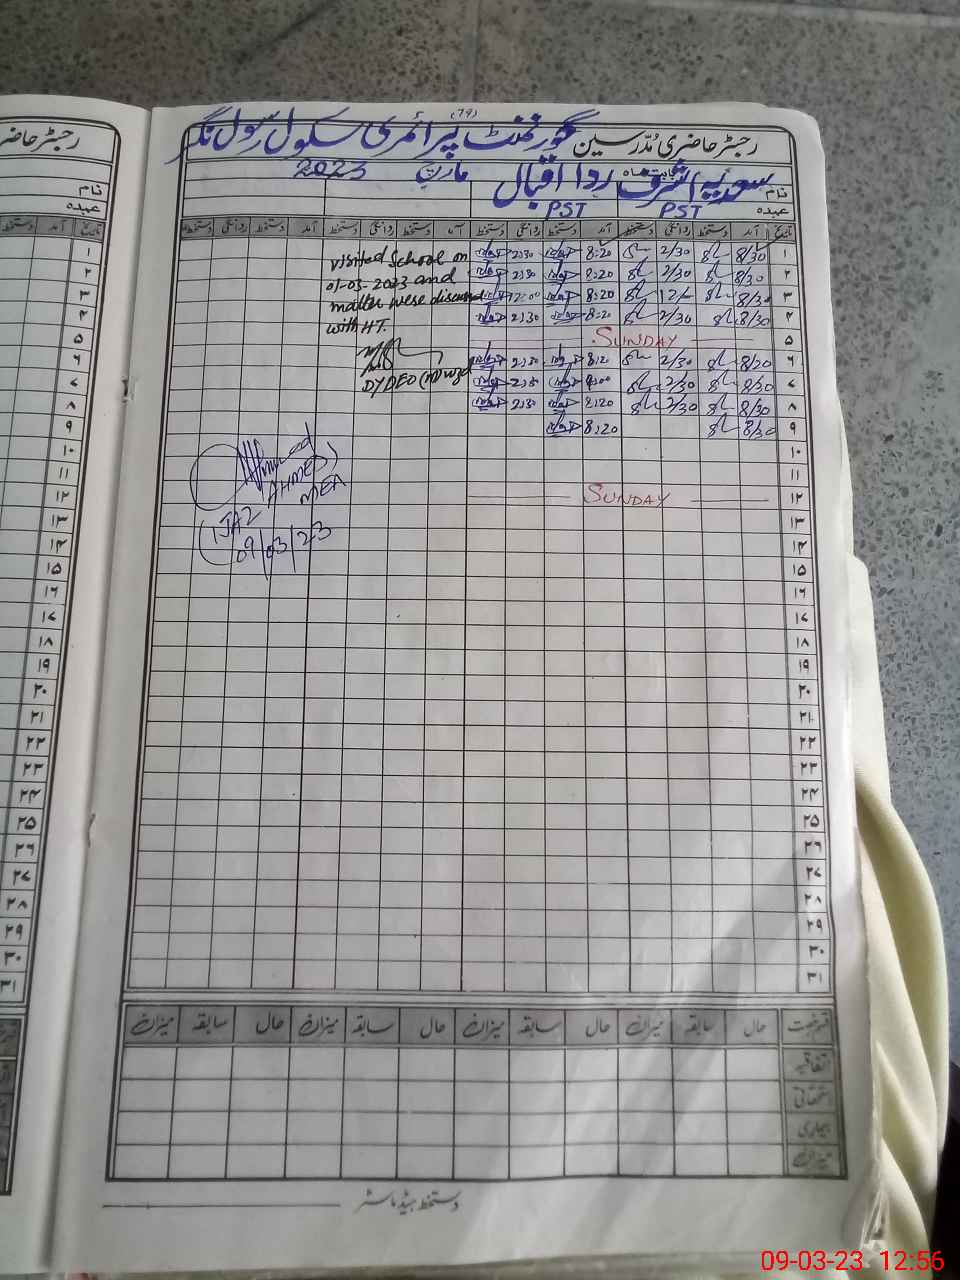 (79)
رجسٹر حاضری مدرسین گورنمنٹ پرائمری سکول رسول نگر
نام سعدیہ اشرف ردا اقبال مارچ 2023
عہدہ PST PST
تاریخ آمد دستخط روانگی دستخط آمد دستخط روانگی دستخط آمد دستخط روانگی دستخط آمد دستخط روانگی دستخط
۱ 8/30 2/30 8:20 2:30
۲ 8/30 2/30 8:20 2:30
۳ 8/30 12/- 8:20 12:00
۴ 8/30 2/30 8:20 2:30
۵ SUNDAY
۶ 8/30 2/30 8:20 2:30
۷ 8/30 2/30 8:00 2:30
۸ 8/30 2/30 8:20 2:30
۹ 8/30 8:20
۱۰
۱۱
۱۲ SUNDAY
۱۳
۱۴
۱۵
۱۶
۱۷
۱۸
۱۹
۲۰
۲۱
۲۲
۲۳
۲۴
۲۵
۲۶
۲۷
۲۸
۲۹
۳۰
۳۱
visited School on
01-03-2023 and
matter were discussed
with HT.
DYDEO
AHMED
(IJAZ MEA
09/03/23
قسم رخصت حال سابقہ میزان حال سابقہ میزان حال سابقہ میزان حال سابقہ میزان
اتفاقیہ
استحقاقی
بیماری
میزان
دستخط ہیڈ ماسٹر
رجسٹر حاضر
نام
عہدہ
تاریخ آمد دستخط
۱
۲
۳
۴
۵
۶
۷
۸
۹
۱۰
۱۱
۱۲
۱۳
۱۴
۱۵
۱۶
۱۷
۱۸
۱۹
۲۰
۲۱
۲۲
۲۳
۲۴
۲۵
۲۶
۲۷
۲۸
۲۹
۳۰
۳۱
09-03-23 12:56